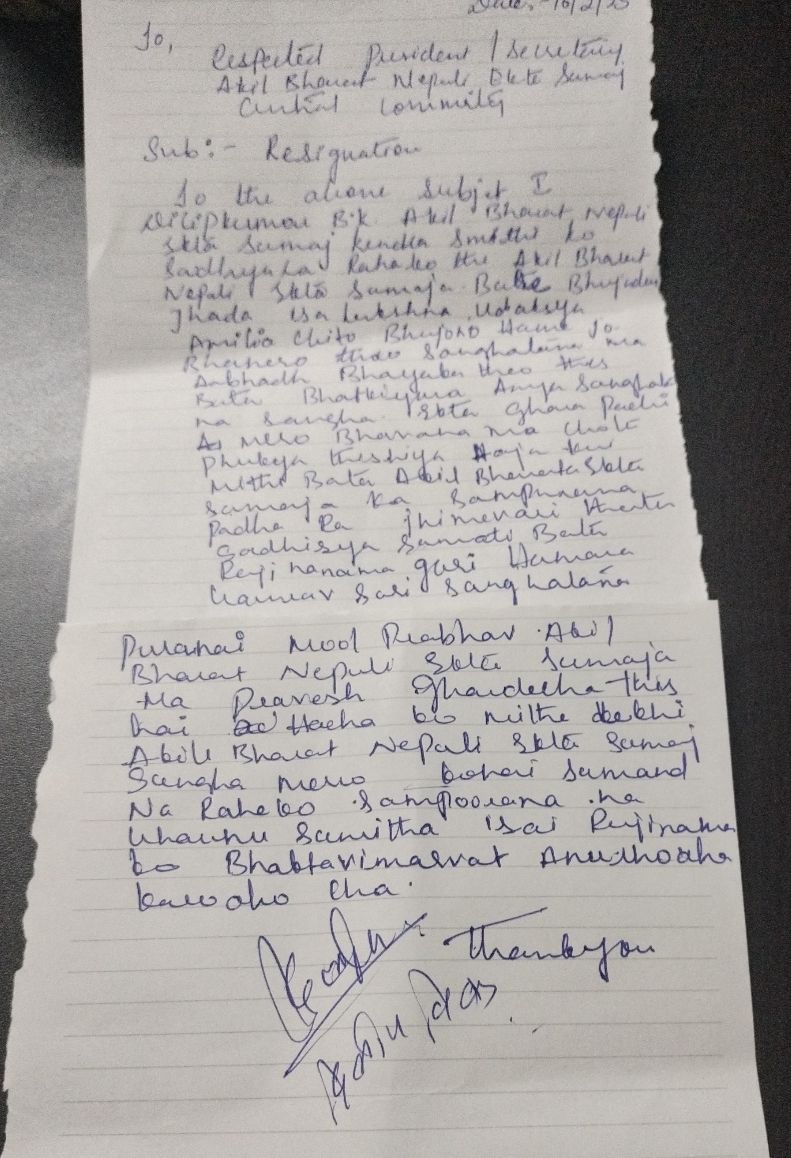 Date:- 10/2/25
To,
Respected President / Secretary
Akil Bharat Nepali Ekta Samaj
Central Committy
Sub:- Resignation
To the above Subjet I
Dilipkumar B.K. Akil Bharat Nepali
Ekta Samaj Kendra Smithi ko
Sadhysa La Raheko the Akil Bharat
Nepali Ekta Samaja Bata Bhujadai
Jhada isa Lukshna
Chito Bhujono Hami Jo
Bhanero thido Sanghatana ma
Anbhadh Bhayaka theo this
Bata Anya Sanghat
na Sangha Ekta Ghara Pachi
As mero Bhavana ma Chota
Phukya theshiya Haja kui
mithi Bata Akil Bharata Ekta
Samaja Ka Sampurana
Padha Ra Jhimevari
Sadhisya Samati Bata
Rajinanama gari Hamara
Sari Sanghatana
Puranai Mool Prabhav Akil
Bharat Nepali Ekta Samaja
Ma Pravesh Ghardecha this
kai Hacha ko mithe dekhi
Akil Bharat Nepali Ekta Samaj
Sangha mero kohai Samand
Na Raheko Sampoorana
Samitha isai Rajinama
ko Anurhodha
cha.
Thankyou